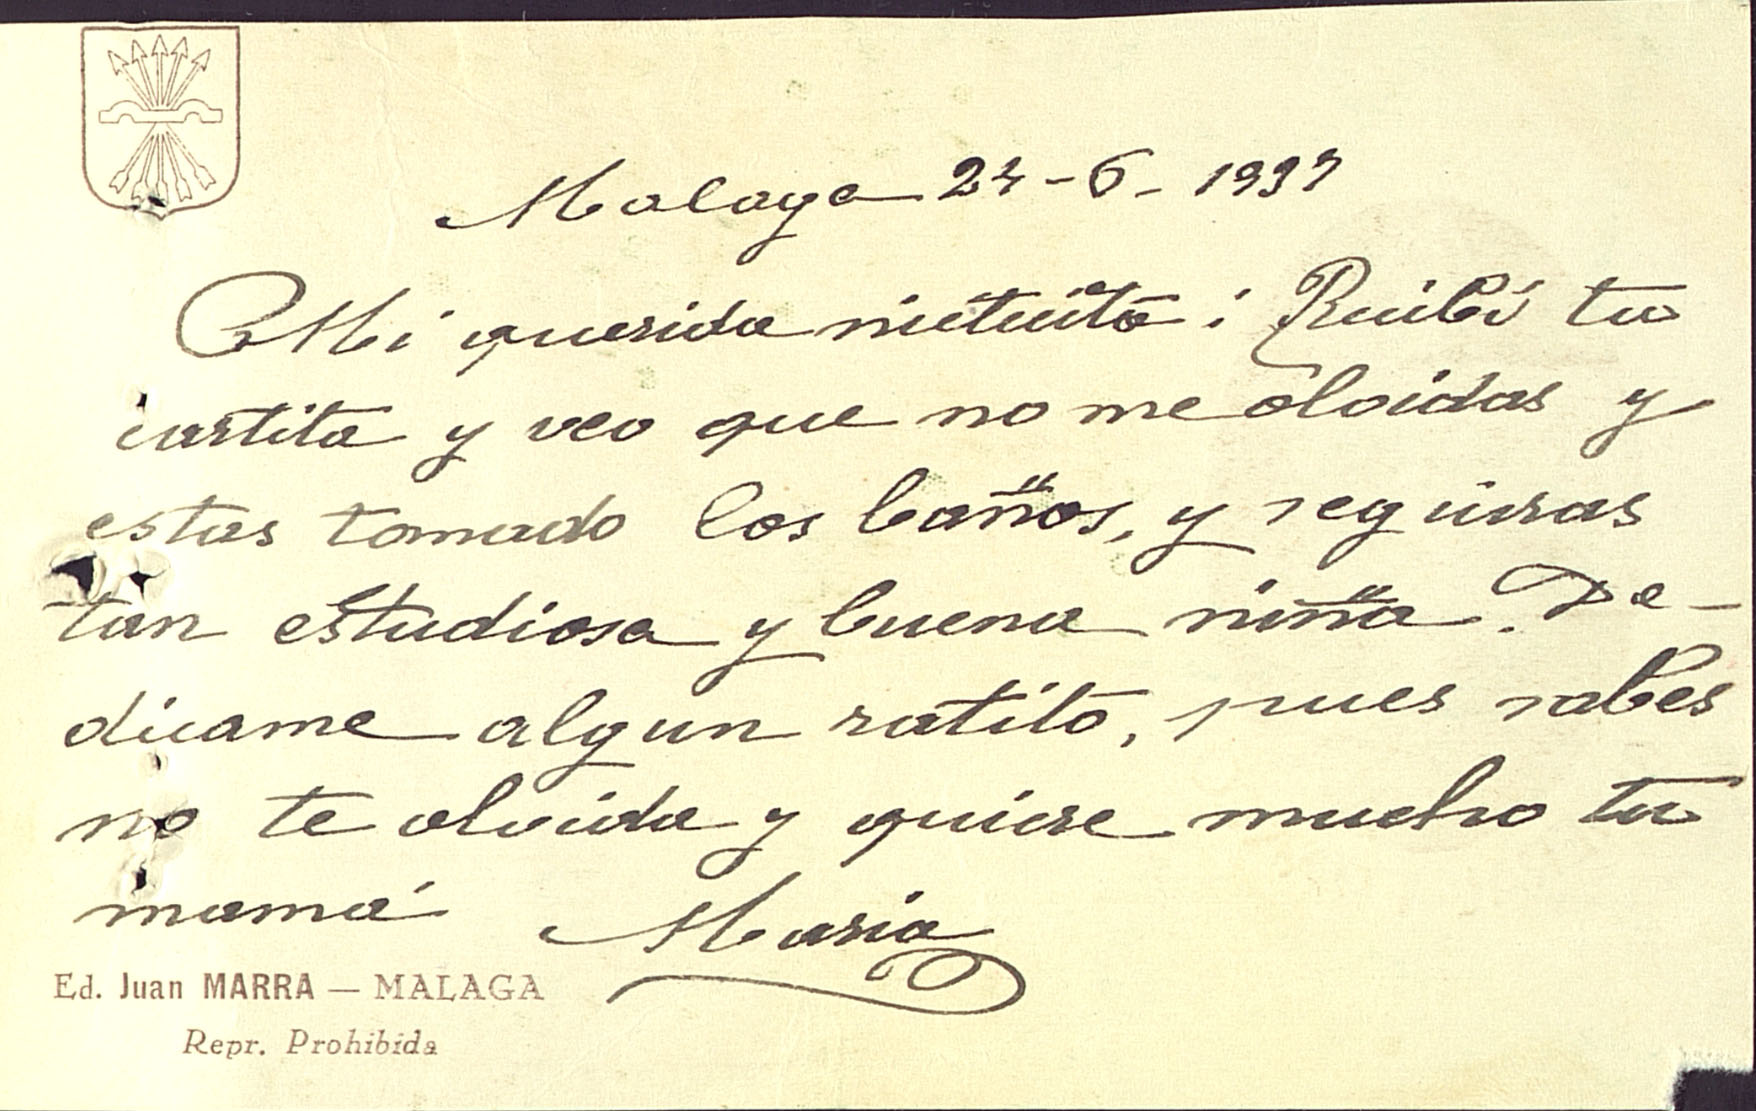 Malaga 24-6-1937
Mi querida nietecita: Recibí tu
cartita y veo que no me olvidas y
estas tomado los baños, y seguiras
tan estudiosa y buena niña. De-
dicame algun ratito, pues sabes
no te olvida y quiere mucho tu
mamá Maria
Ed. Juan MARRA — MALAGA
Repr. Prohibida